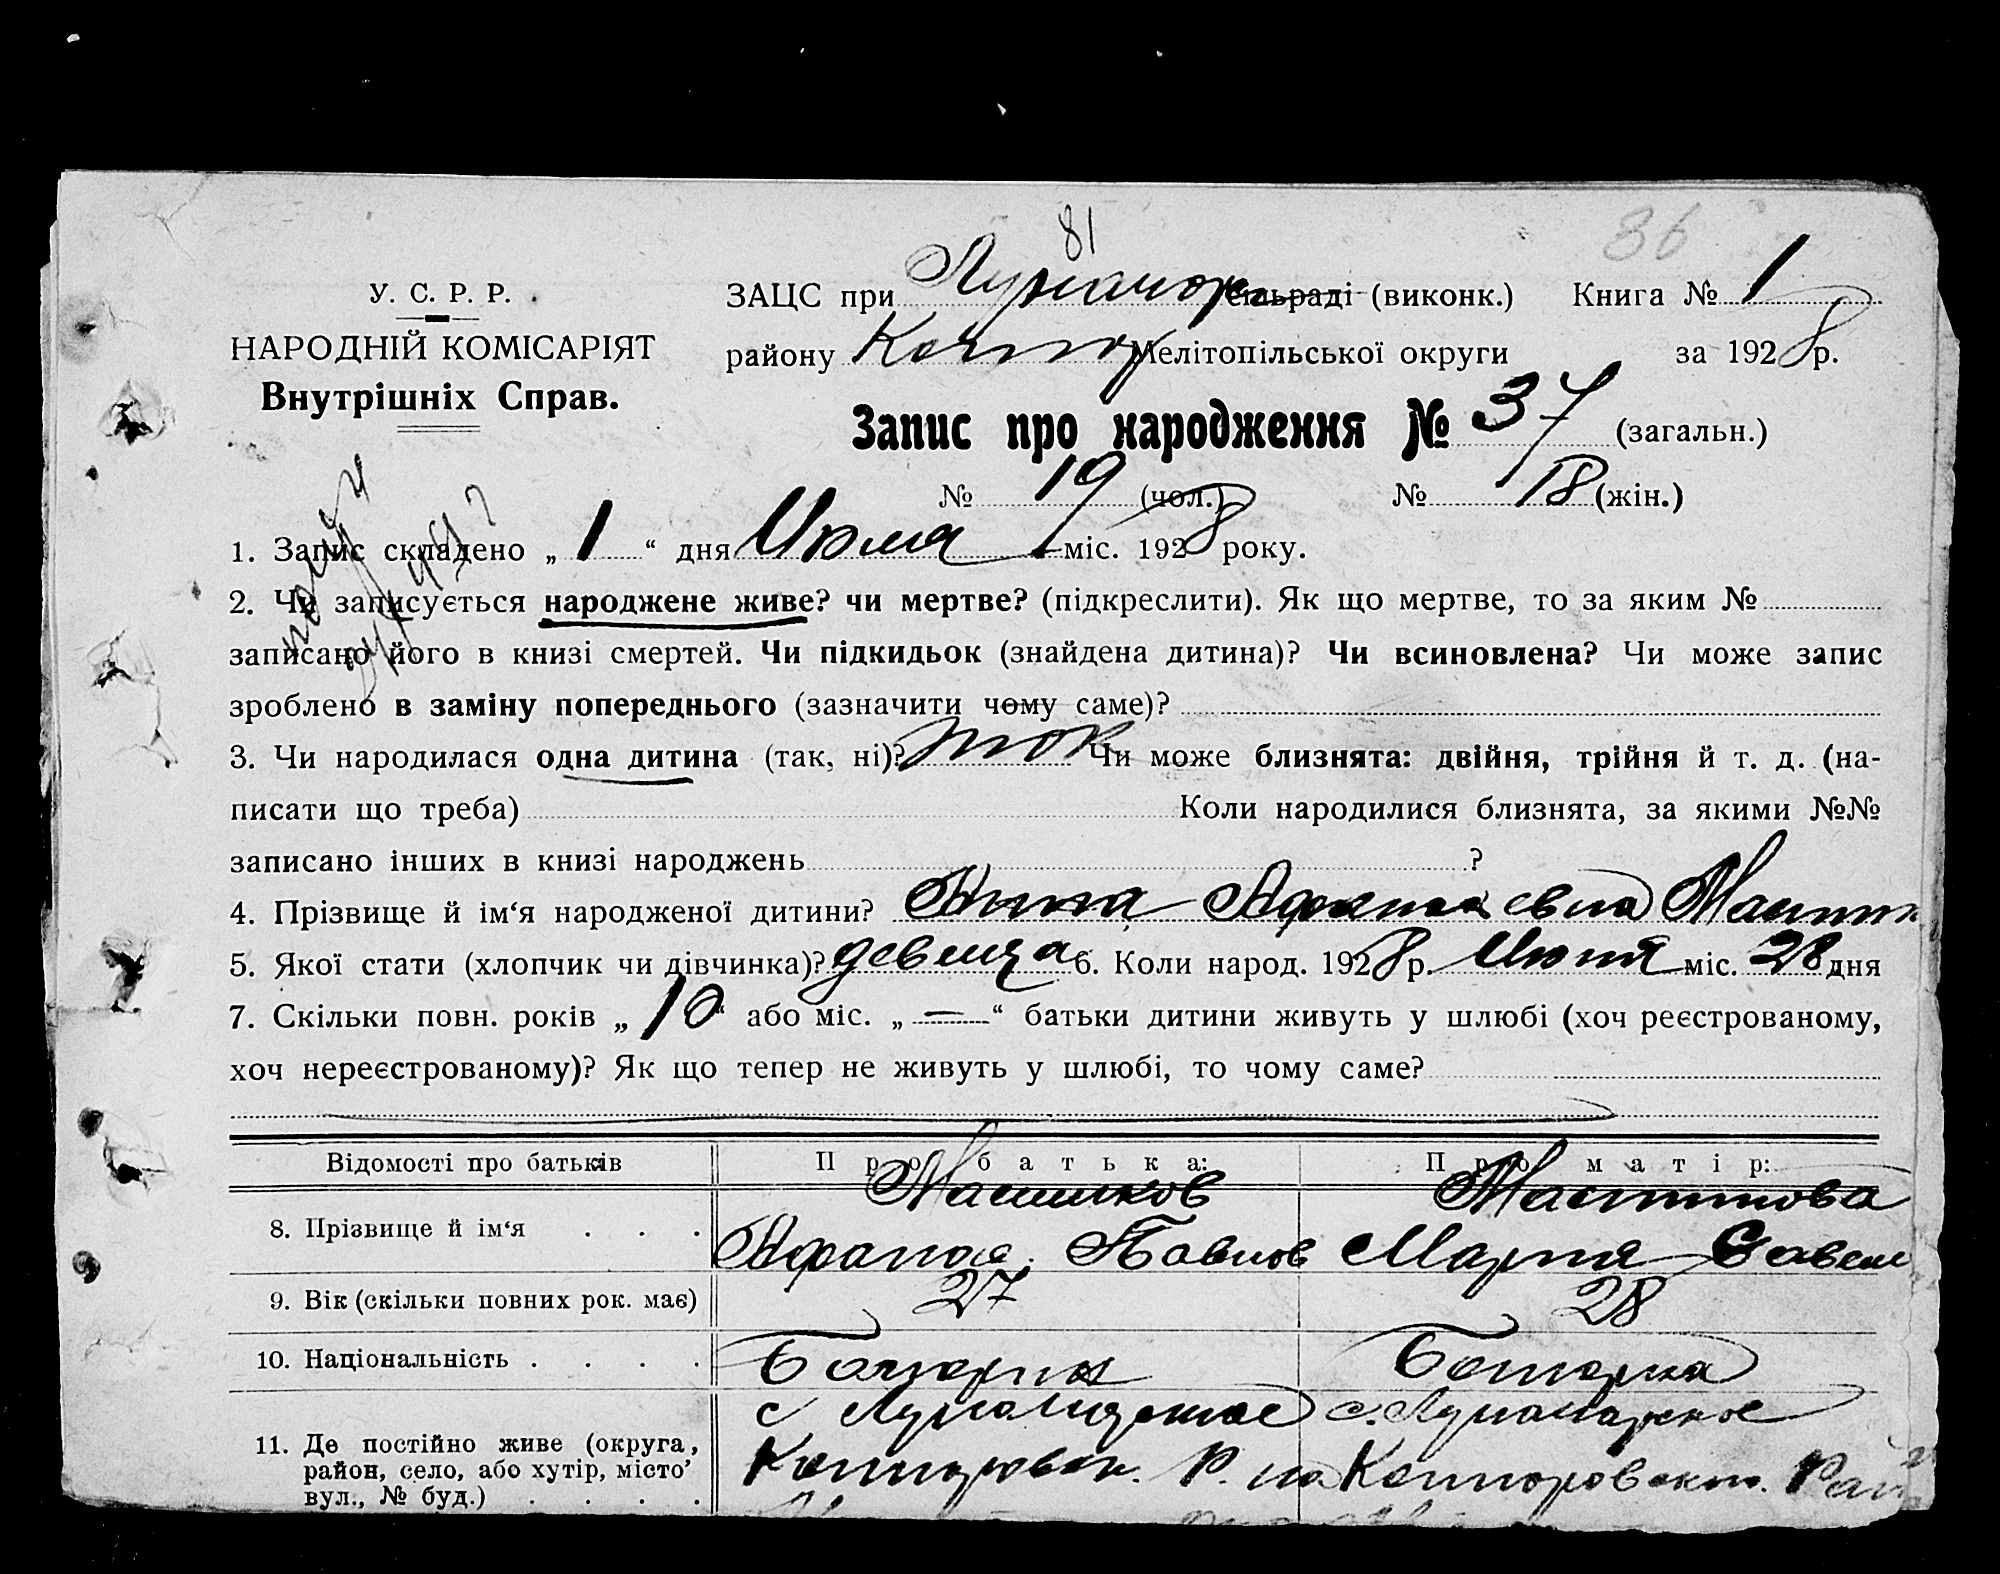 81
86
У. С. Р. Р.
НАРОДНІЙ КОМІСАРІЯТ
Внутрішніх Справ.
ЗАЦС при Луначар сільраді (виконк.) Книга № 1
району Мелітопільської округи за 1928 р.
Запис про народження № 37 (загальн.)
№ 19 (чол.) № 18 (жін.)
1. Запис складено „ 1 “ дня Июля міс. 1928 року.
2. Чи записується народжене живе? чи мертве? (підкреслити). Як що мертве, то за яким №
записано його в книзі смертей. Чи підкидьок (знайдена дитина)? Чи всиновлена? Чи може запис
зроблено в заміну попереднього (зазначити чому саме)?
3. Чи народилася одна дитина (так, ні)? так Чи може близнята: двійня, трійня й т. д. (на-
писати що треба) Коли народилися близнята, за якими №№
записано інших в книзі народжень ?
4. Прізвище й ім‘я народженої дитини?
5. Якої стати (хлопчик чи дівчинка)? девица 6. Коли народ. 1928 р. Июня міс. 28 дня
7. Скільки повн. років „ 10 “ або міс. „ — “ батьки дитини живуть у шлюбі (хоч реєстрованому,
хоч нереєстрованому)? Як що тепер не живуть у шлюбі, то чому саме?
Відомості про батьків Про батька: Про матір:
8. Прізвище й ім‘я . . . Афанас. Павлов Мария Савел
9. Вік (скільки повних рок. має) 27 28
10. Національність . . . . Болгарин Болгарка
11. Де постійно живе (округа, с с. Луначарское
район, село, або хутір, місто’ Р. на Рай
вул., № буд.) . . . .